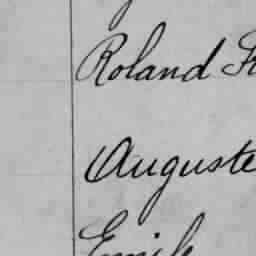 Roland
Auguste
Emile